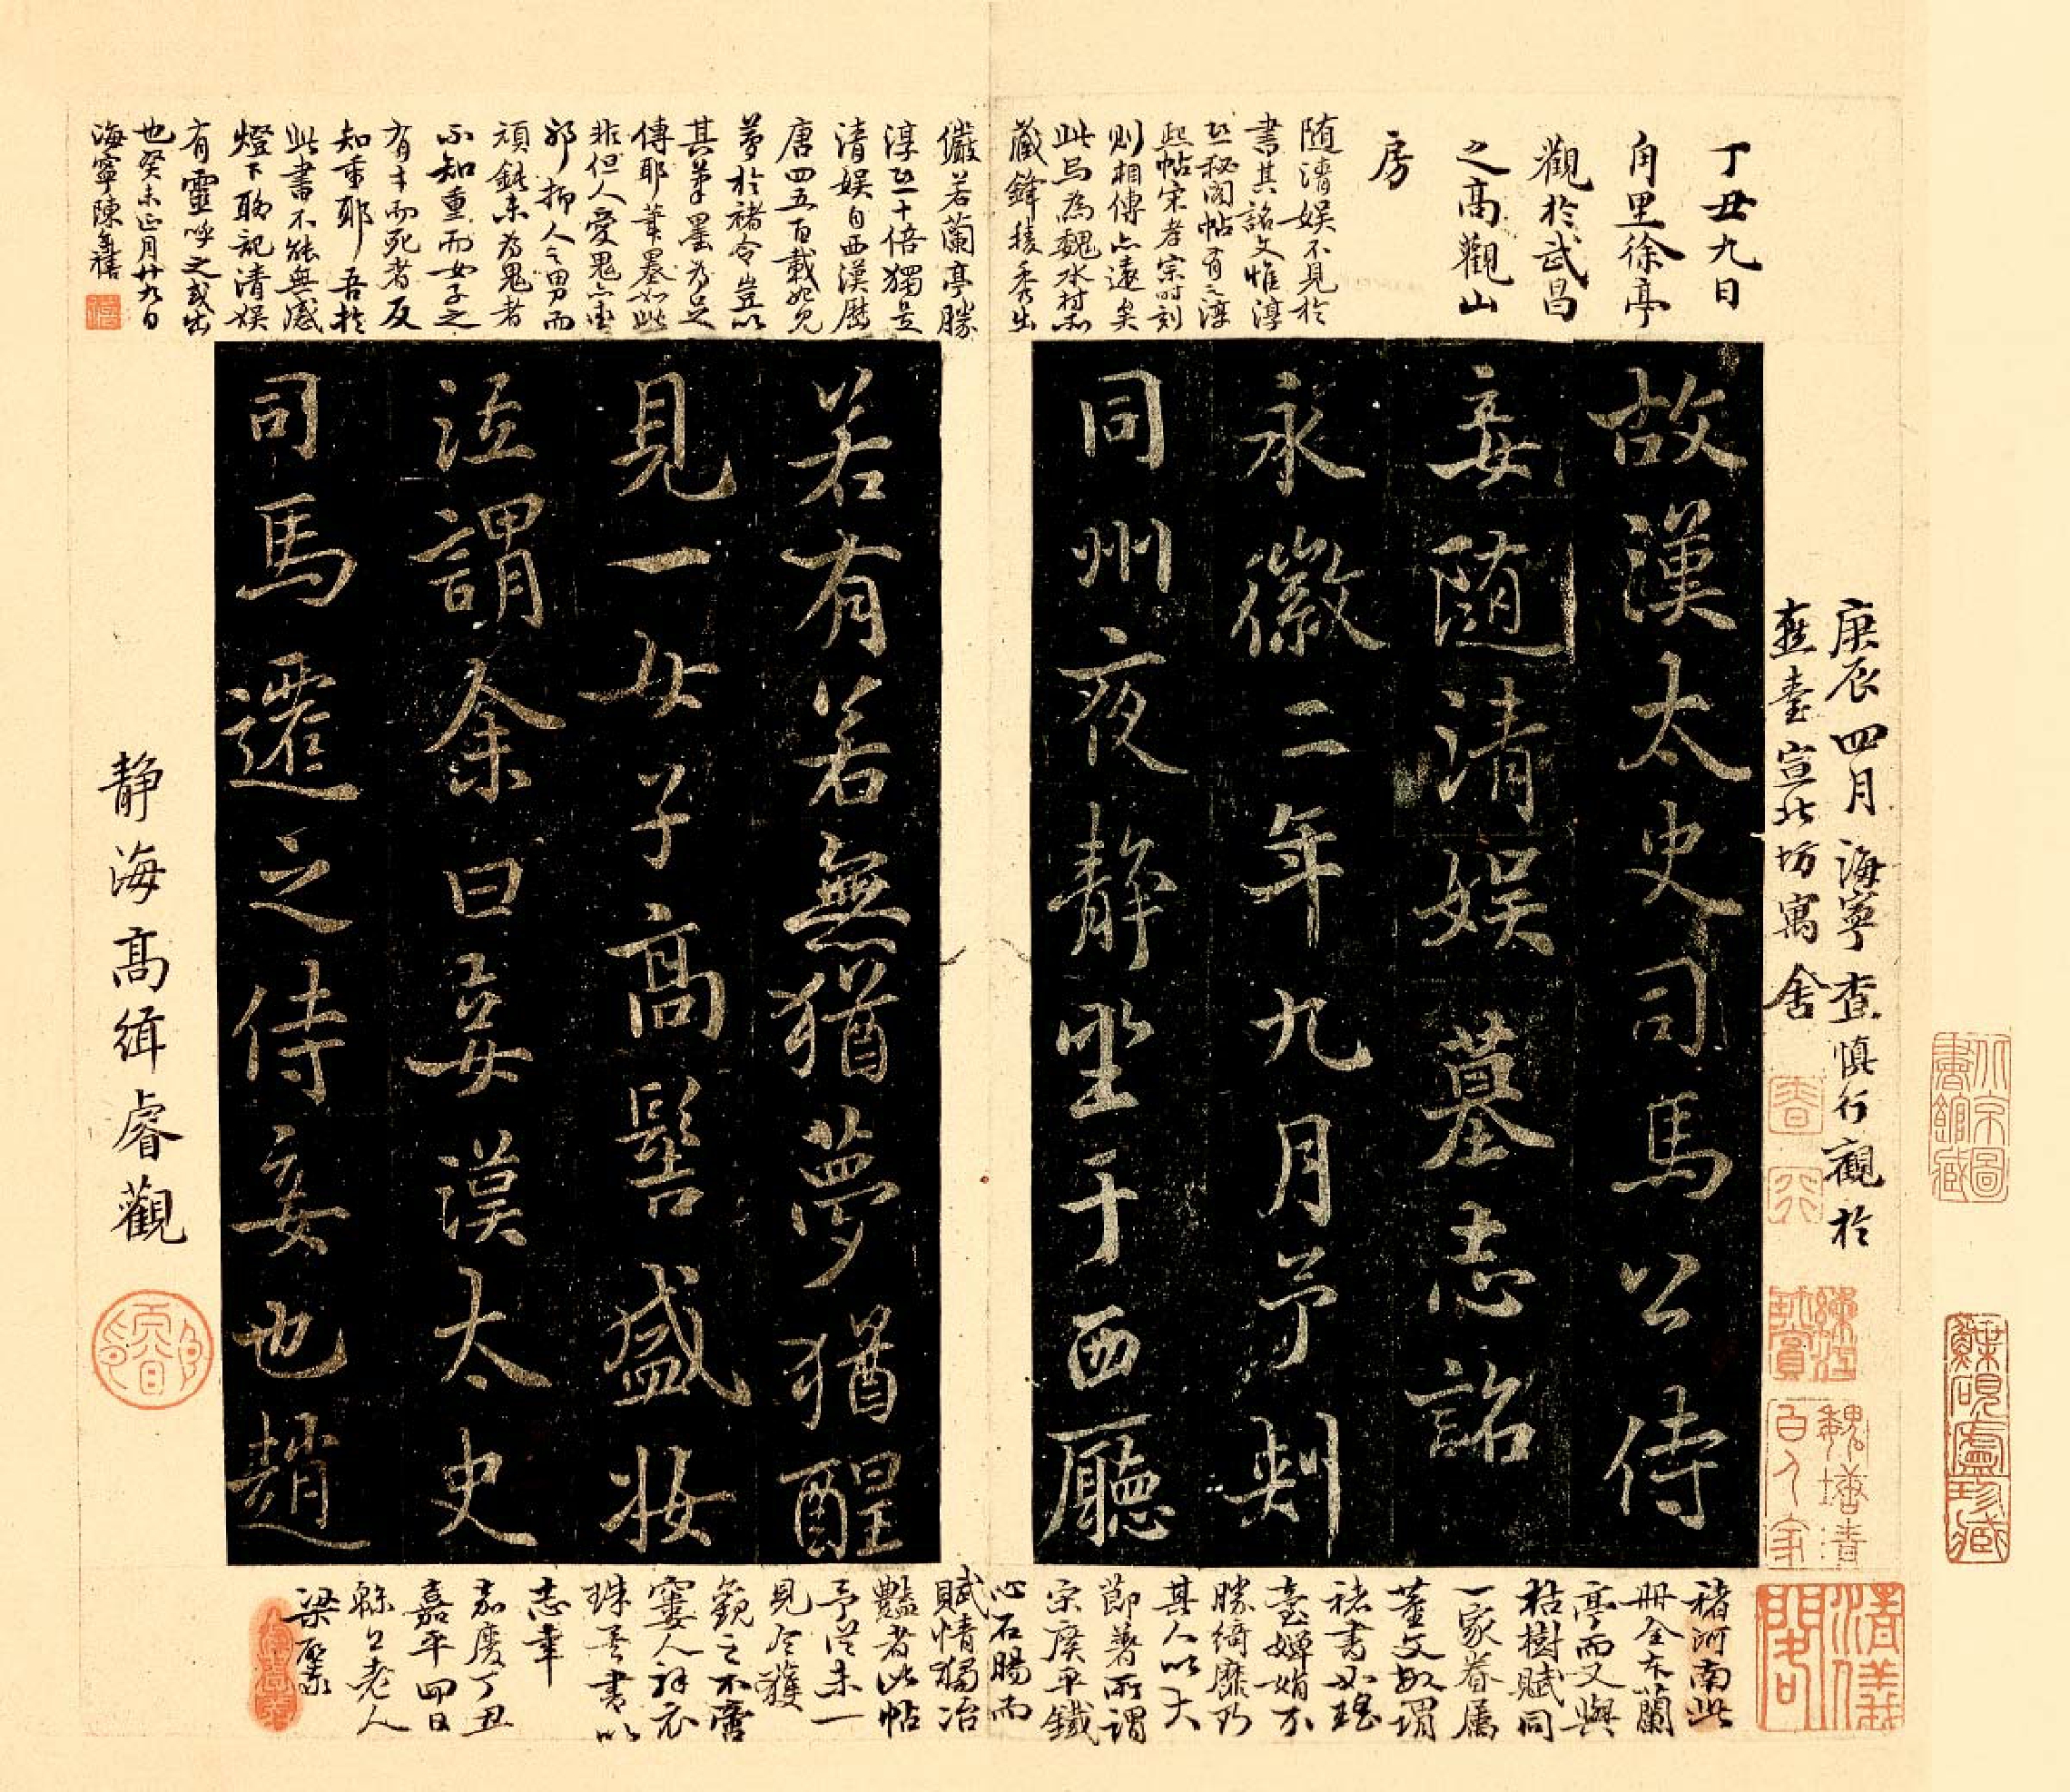 庚辰四月海寧查慎行觀於
燕臺宣北坊寓舍
丁丑九日
甪里徐亭
觀於武昌
之高觀山
房
隨清娱不見於
書其銘文惟淳
熙秘閣帖有之淳
熙帖宋孝宗時刻
則相傳亦遠矣
此烏為魏水村本
藏鋒穠秀出
儼若蘭亭勝
淳熙十倍獨是
清娱自西漢歷
唐四五百載始見
夢於褚令豈以
其筆墨為足
傳耶筆墨如此
非但人愛鬼亦重
耶抑人之男而
頑鈍未為鬼者
不知重而女子之
有才而死者反
知重耶吾於
此書不能無感
燈下聊記清娱
有靈呼之或出
也癸未正月廿九日
海寧陳奕禧
故漢太史司馬公侍
妾隨清娱墓志銘
永徽二年九月予判
同州夜静坐于西廳
若有若無猶夢猶醒
見一女子高髻盛妝
泣謂余曰妾漢太史
司馬遷之侍妾也趙
静海高緝睿觀
褚河南此
册全本蘭
亭而又與
枯樹賦同
一家眷屬
董文敏謂
褚書如瑶
臺嬋娟不
勝綺靡乃
其人以大
節著所謂
宋廣平鐵
心石腸而
賦情獨冶
豔者此帖
予從未一
見今獲
觀之不啻
窶人補衣
珠吾書以
志幸
嘉慶丁丑
嘉平四日
蘇公老人
梁聚